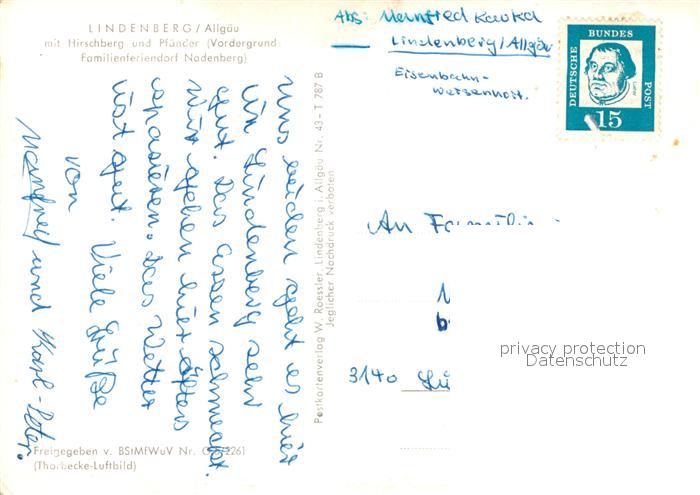 LINDENBERG/Allgäu
mit Hirschberg und Pfänder (Vordergrund
Familienferiendorf Nadenberg)
uns beiden geht es hier
in Lindenberg sehr
gut. Das Essen schmeckt.
Wir gehen hier öfters
spazieren. Das Wetter
ist gut. Viele Grüße
von
Manfred und Karl-Peter.
Freigegeben v. BStMfWuV Nr. G 2261
(Thorbecke-Luftbild)
Postkartenverlag W. Roessler, Lindenberg i. Allgäu Nr. 43 - T 787 B
Jeglicher Nachdruck verboten
Abs: Manfred
Lindenberg/Allgäu
Eisenbahn-
waisenhort.
DEUTSCHE BUNDES POST
Luther
15
An Familie
3140 Lü
privacy protection
Datenschutz